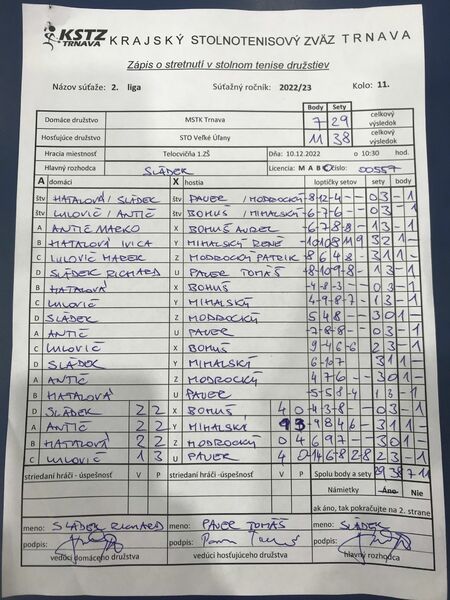 KSTZ TRNAVA KRAJSKÝ STOLNOTENISOVÝ ZVÄZ TRNAVA
Zápis o stretnutí v stolnom tenise družstiev
Názov súťaže: 2. liga Súťažný ročník: 2022/23 Kolo: 11.
Body Sety
Domáce družstvo MSTK Trnava 7 29 celkový výsledok
Hosťujúce družstvo STO Veľké Úľany 11 38 celkový výsledok
Hracia miestnosť Telocvičňa 1.ZŠ Dňa: 10.12.2022 o 10:30 hod.
Hlavný rozhodca SLÁDEK Licencia: M A B C číslo: 00557
A domáci X hostia loptičky setov sety body
štv HATALOVÁ / SLÁDEK štv PAVER / MODROCKÝ 03 -1
štv LULOVIČ / ANTIČ štv BOHUŠ / MIHALSKÝ -6-7-6 03 -1
A ANTIČ MARKO X BOHUŠ AUREL 13 -1
B HATALOVÁ IVICA Y MIHALSKÝ RENÉ 32 1-
C LULOVIČ MAREK Z MODROCKÝ PATRIK 31 1-
D SLÁDEK RICHARD U PAVER TOMÁŠ 13 -1
B HATALOVÁ X BOHUŠ -4-8-3 03 -1
C LULOVIČ Y MIHALSKÝ 13 -1
D SLÁDEK Z MODROCKÝ 5 4 8 30 1-
A ANTIČ U PAVER -7-8-8 03 -1
C LULOVIČ X BOHUŠ 23 -1
D SLÁDEK Y MIHALSKÝ 31 1-
A ANTIČ Z MODROCKÝ 4 7 6 30 1-
B HATALOVÁ U PAVER 13 -1
D SLÁDEK 2 2 X BOHUŠ 4 0 03 -1
A ANTIČ 2 2 Y MIHALSKÝ 31 1-
B HATALOVÁ 2 2 Z MODROCKÝ 0 4 6 9 7 30 1-
C LULOVIČ 1 3 U PAVER 4 0 23 -1
striedaní hráči -úspešnosť V P striedaní hráči - úspešnosť V P Spolu body a sety 29 38 7 11
Námietky Áno Nie
ak áno, tak pokračujte na 2. strane
meno: SLÁDEK RICHARD meno: PAVER TOMÁŠ meno: SLÁDEK
podpis: podpis: podpis:
vedúci domáceho družstva vedúci hosťujúceho družstva hlavný rozhodca